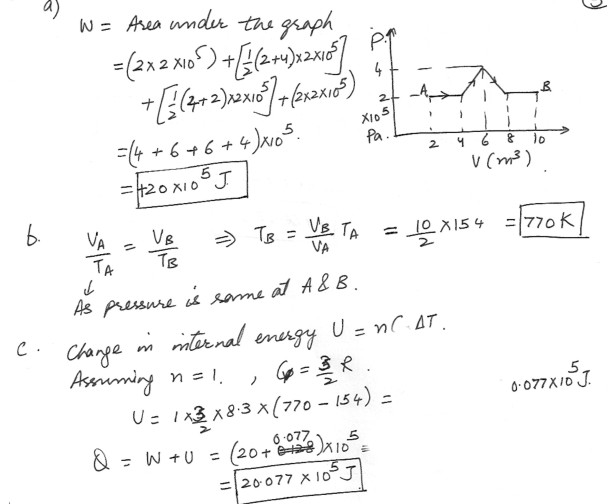 a)
W = Area under the graph
= (2 x 2 x 10^5) + [1/2 (2+4) x 2 x 10^5]
+ [1/2 (4+2) x 2 x 10^5] + (2x2x10^5)
= (4 + 6 + 6 + 4) x 10^5.
= +20 x 10^5 J
P.
4
2
x10^5
Pa.
A
B
2 4 6 8 10
V (m^3)
b. V_A/T_A = V_B/T_B ⇒ T_B = V_B/V_A T_A = 10/2 x 154 = 770 K
↓
As pressure is same at A & B.
c. Change in internal energy U = nC ΔT.
Assuming n = 1. , = 3/2 R.
U = 1 x 3/2 x 8.3 x (770 - 154) = 0.077 x 10^5 J.
0.077
Q = W + U = (20 + ) x 10^5 =
= 20.077 x 10^5 J